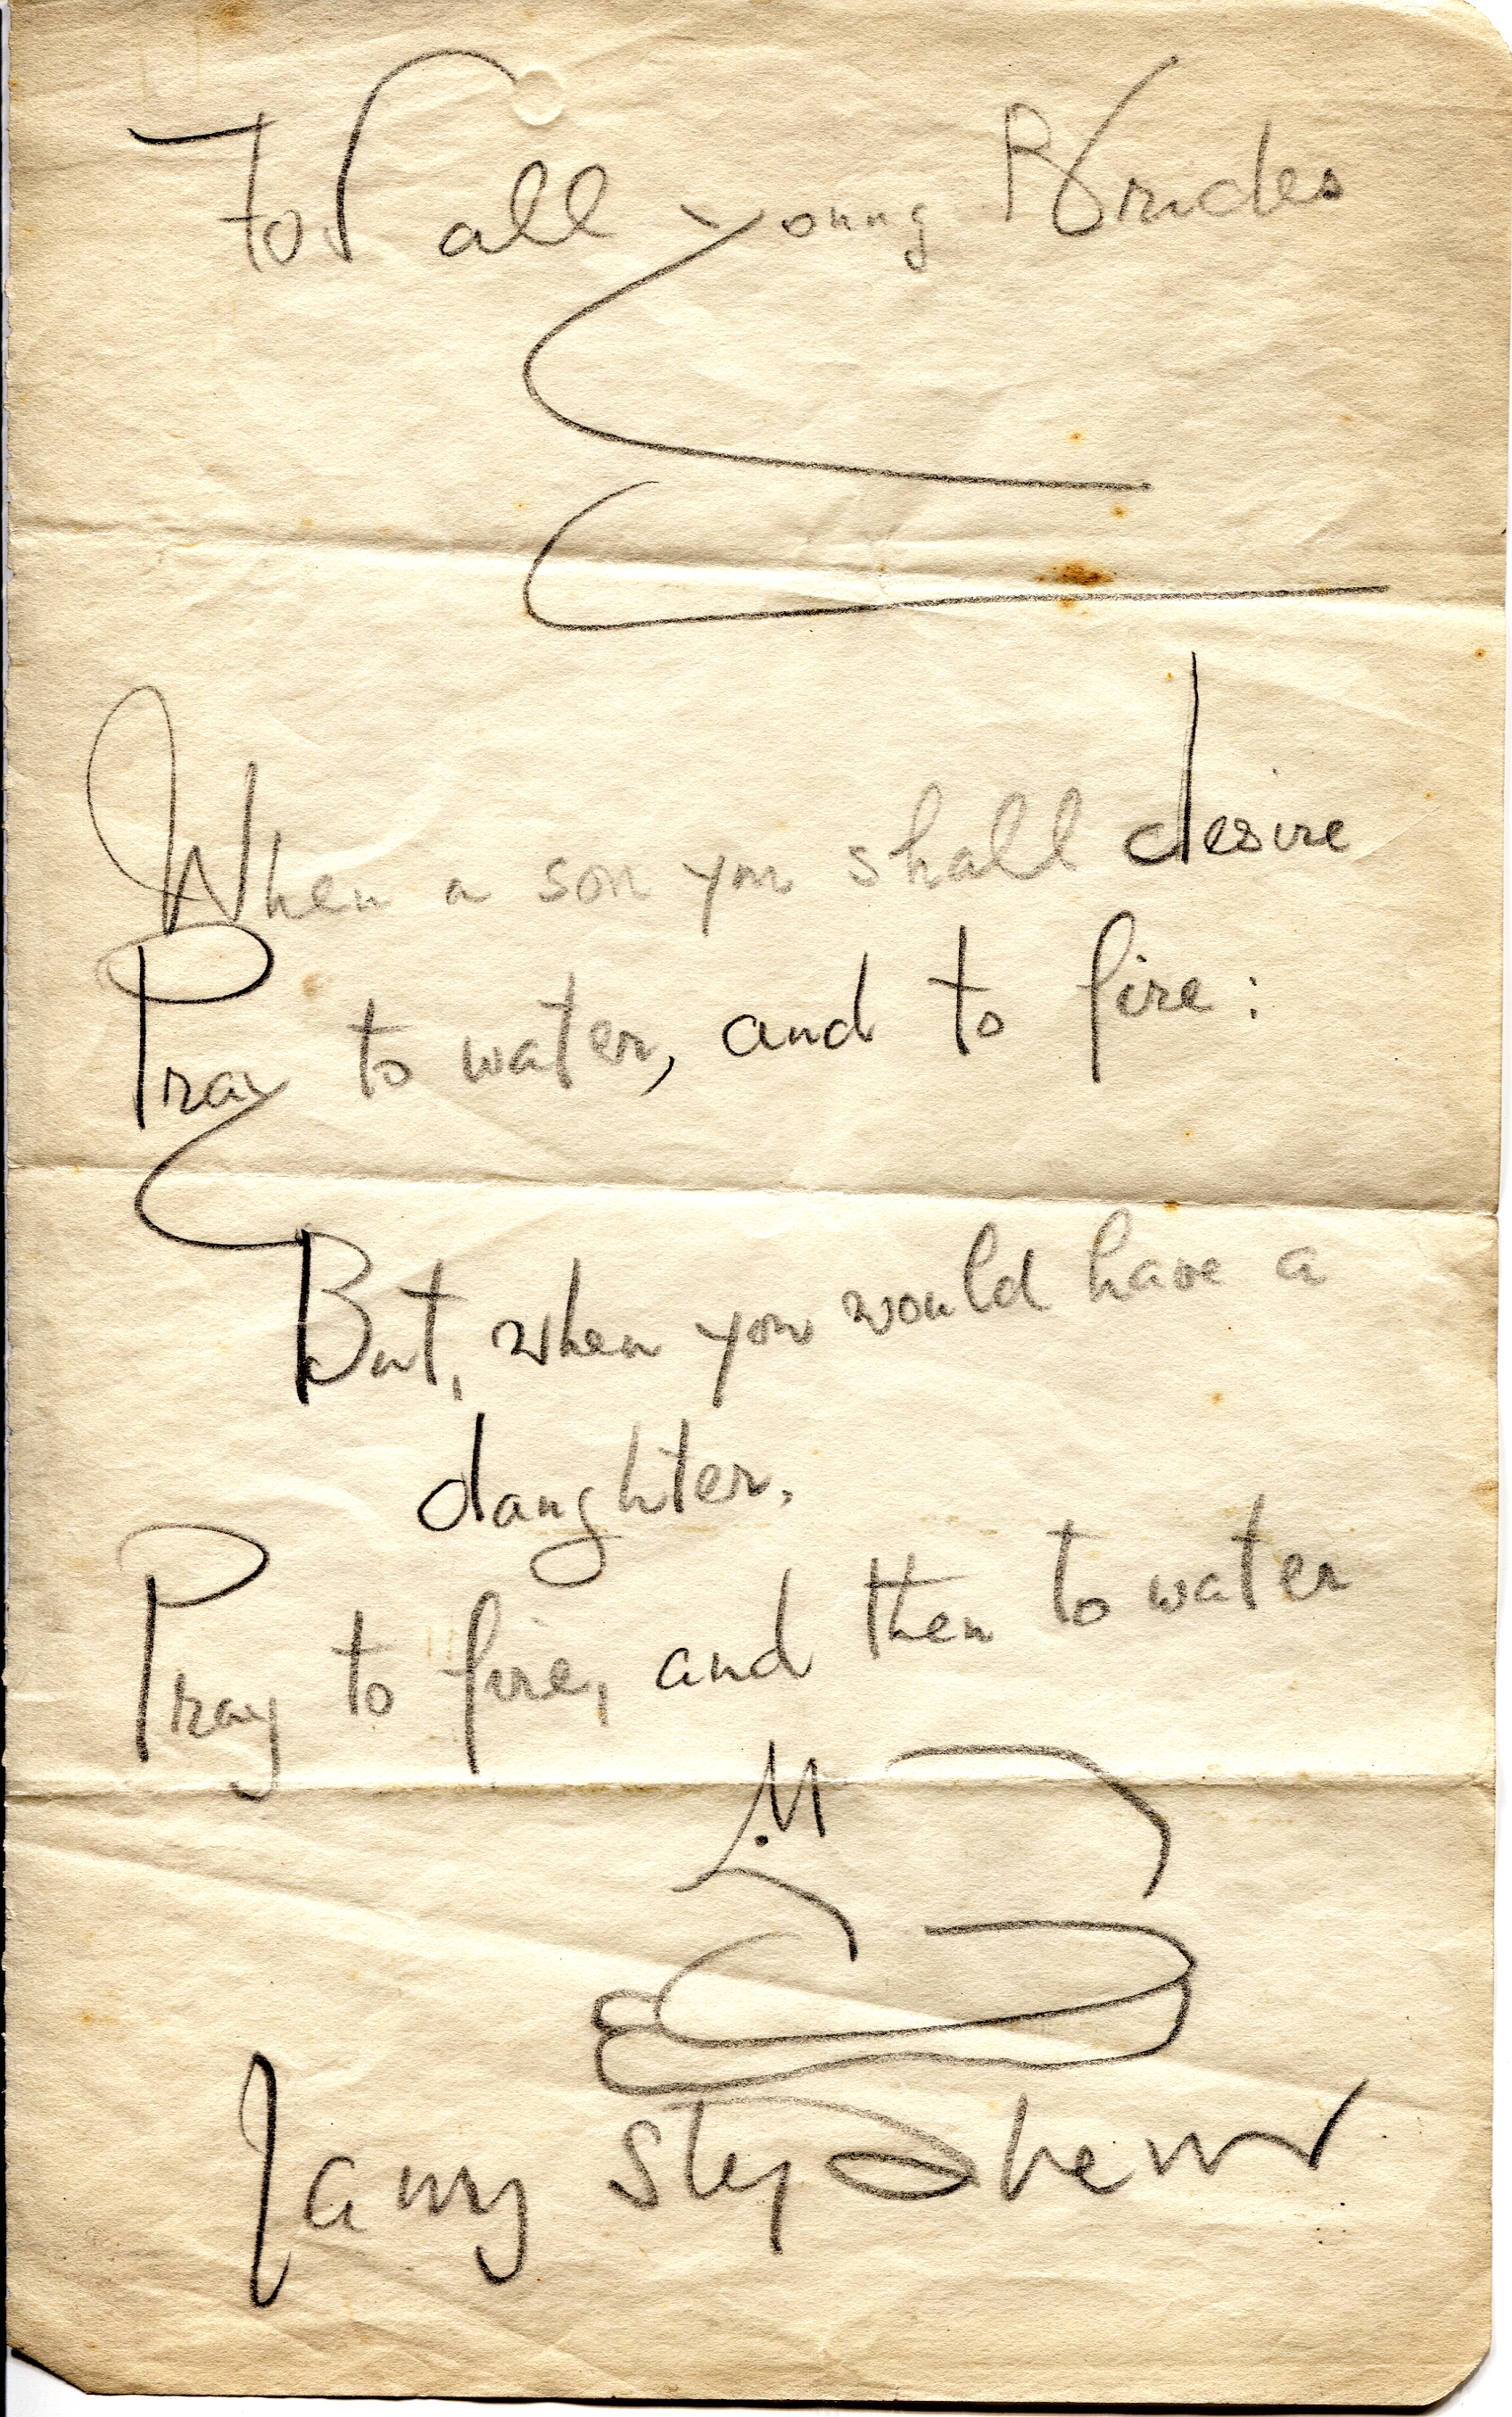 For all young Brides
When a son you shall desire
Pray to water, and to fire:
But, when you would have a
daughter,
Pray to fire, and then to water
James Stephens